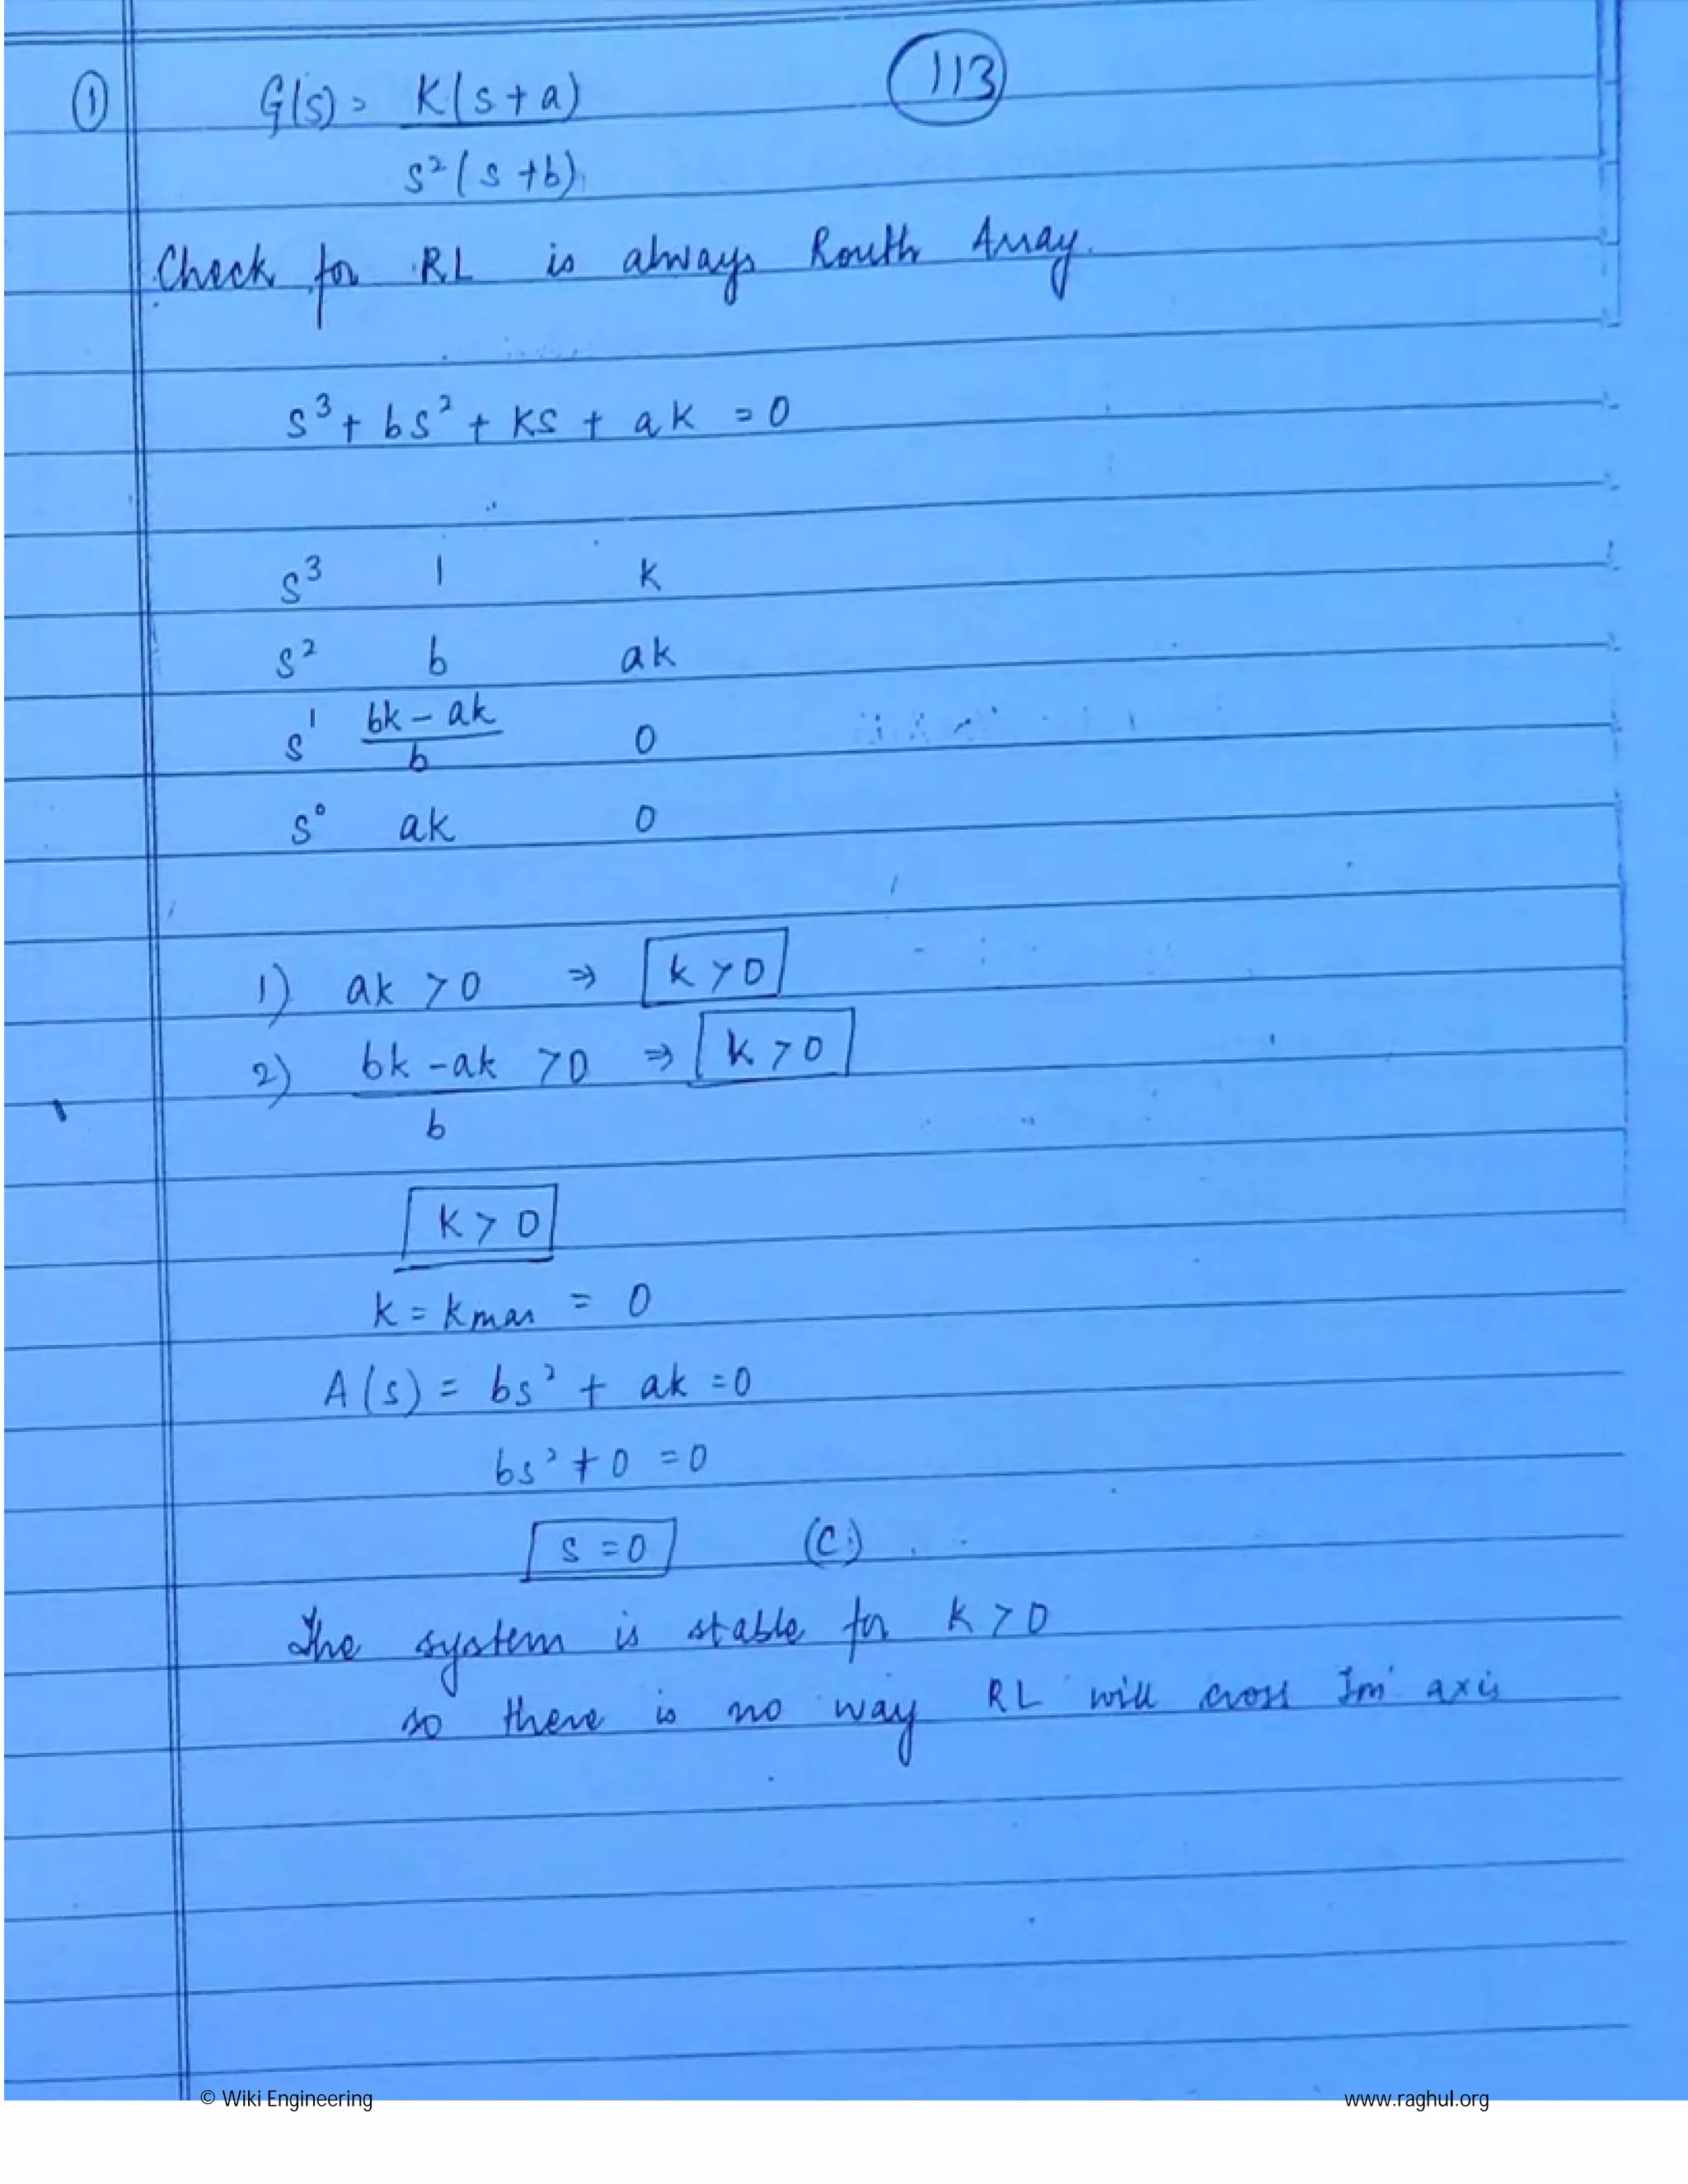 ① G(s) = K(s+a) (113)
s²(s+b)
Check for RL is always Routh Array.
s³ + bs² + ks + ak = 0
s³ 1 k
s² b ak
s¹ bk-ak 0
b
s⁰ ak 0
1) ak > 0 ⇒ k > 0
2) bk-ak > 0 ⇒ k > 0
b
k > 0
k = kmar = 0
A(s) = bs² + ak = 0
bs² + 0 = 0
s = 0 (C)
The system is stable for k > 0
so there is no way RL will cross Im axis
© Wiki Engineering www.raghul.org